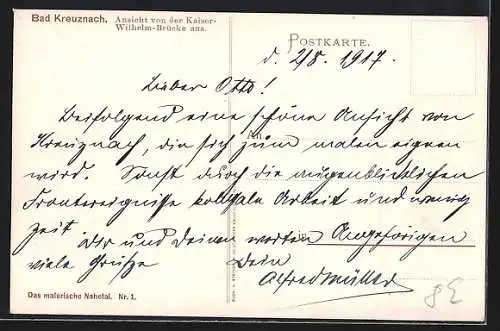 Bad Kreuznach. Ansicht von der Kaiser-
Wilhelm-Brücke aus.
POSTKARTE.
d. 2/8. 1917.
Lieber Otto!
An
Beifolgend eine schöne Ansicht von
Kreuznach, die sich zum malen eignen
wird. Sonst durch die augenblicklichen
Frontereignisse kolossale Arbeit und wenig
Zeit
Dir und Deinen werten Angehörigen
in
viele Grüße Dein
Alfred Müller
Das malerische Nahetal. Nr. 1.